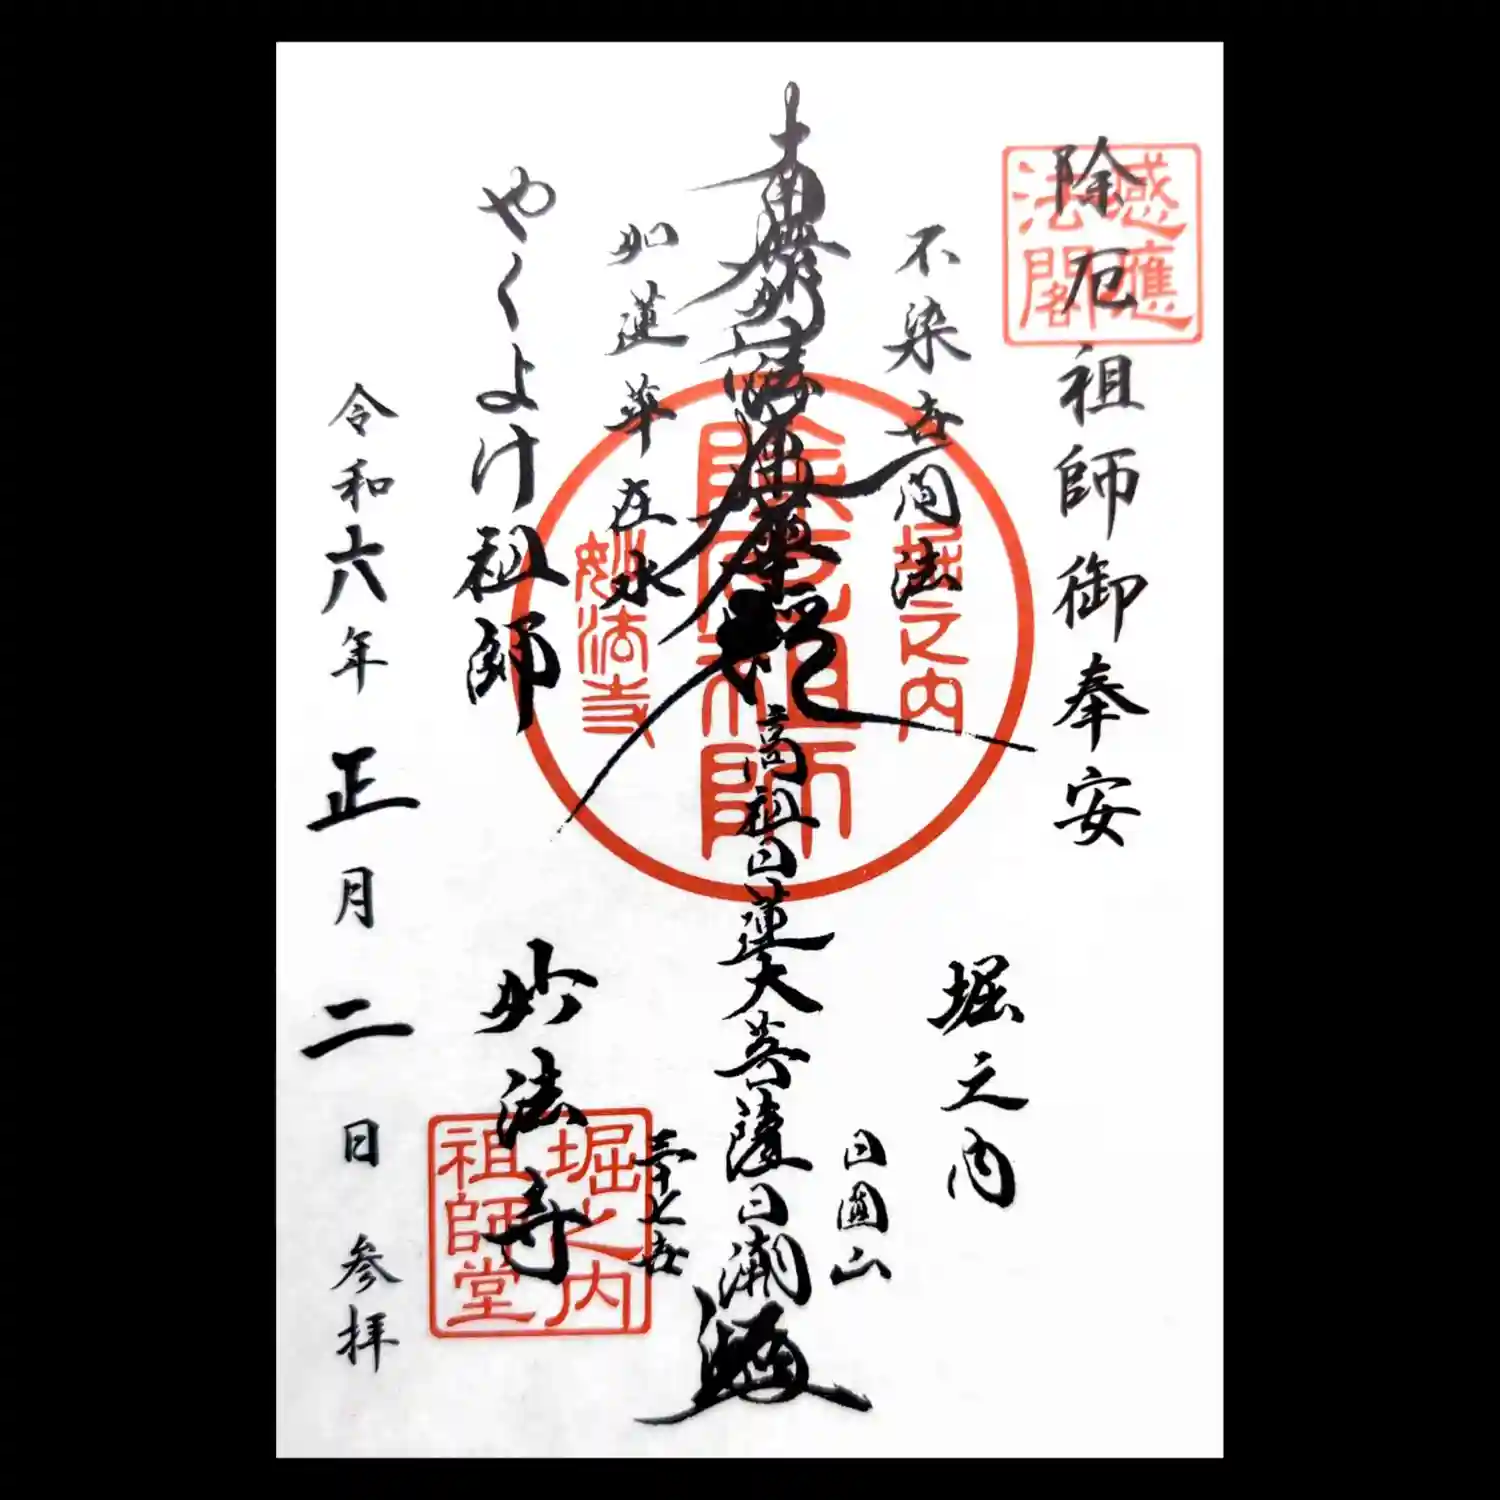 除厄祖師御奉安
堀之内
感應
法閣
不染世間法
日圓山
南無妙法蓮華経
高祖日蓮大菩薩
日潮
除厄祖師
堀之内
妙法寺
如蓮華在水
三十七世
やくよけ祖師
妙法寺
堀之内
祖師堂
令和六年正月二日参拝